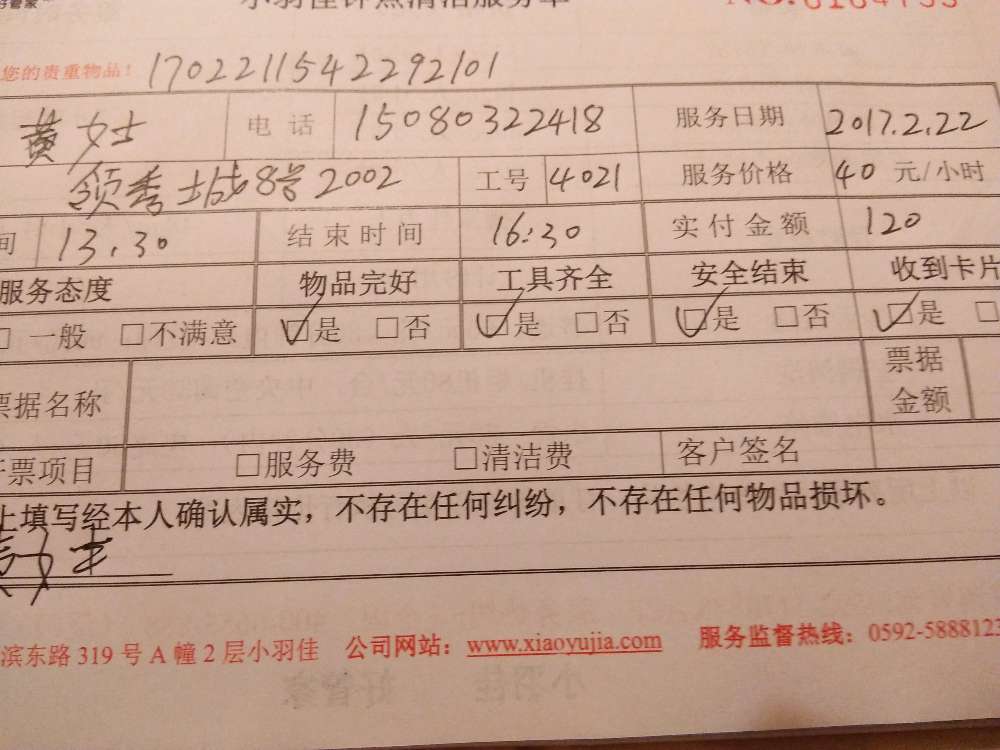 好管家 小羽佳钟点清洁服务单 NO.0164755
您的贵重物品! 1702211542292101
黄女士 电话 15080322418 服务日期 2017.2.22
领秀城8号2002 工号 4021 服务价格 40 元/小时
间 13.30 结束时间 16:30 实付金额 120
服务态度 物品完好 工具齐全 安全结束 收到卡片
□一般 □不满意 □是 □否 □是 □否 □是 □否 □是 □
票据名称 票据金额
开票项目 □服务费 □清洁费 客户签名
上填写经本人确认属实，不存在任何纠纷，不存在任何物品损坏。
滨东路 319 号 A 幢 2 层小羽佳 公司网站：www.xiaoyujia.com 服务监督热线：0592-5888123